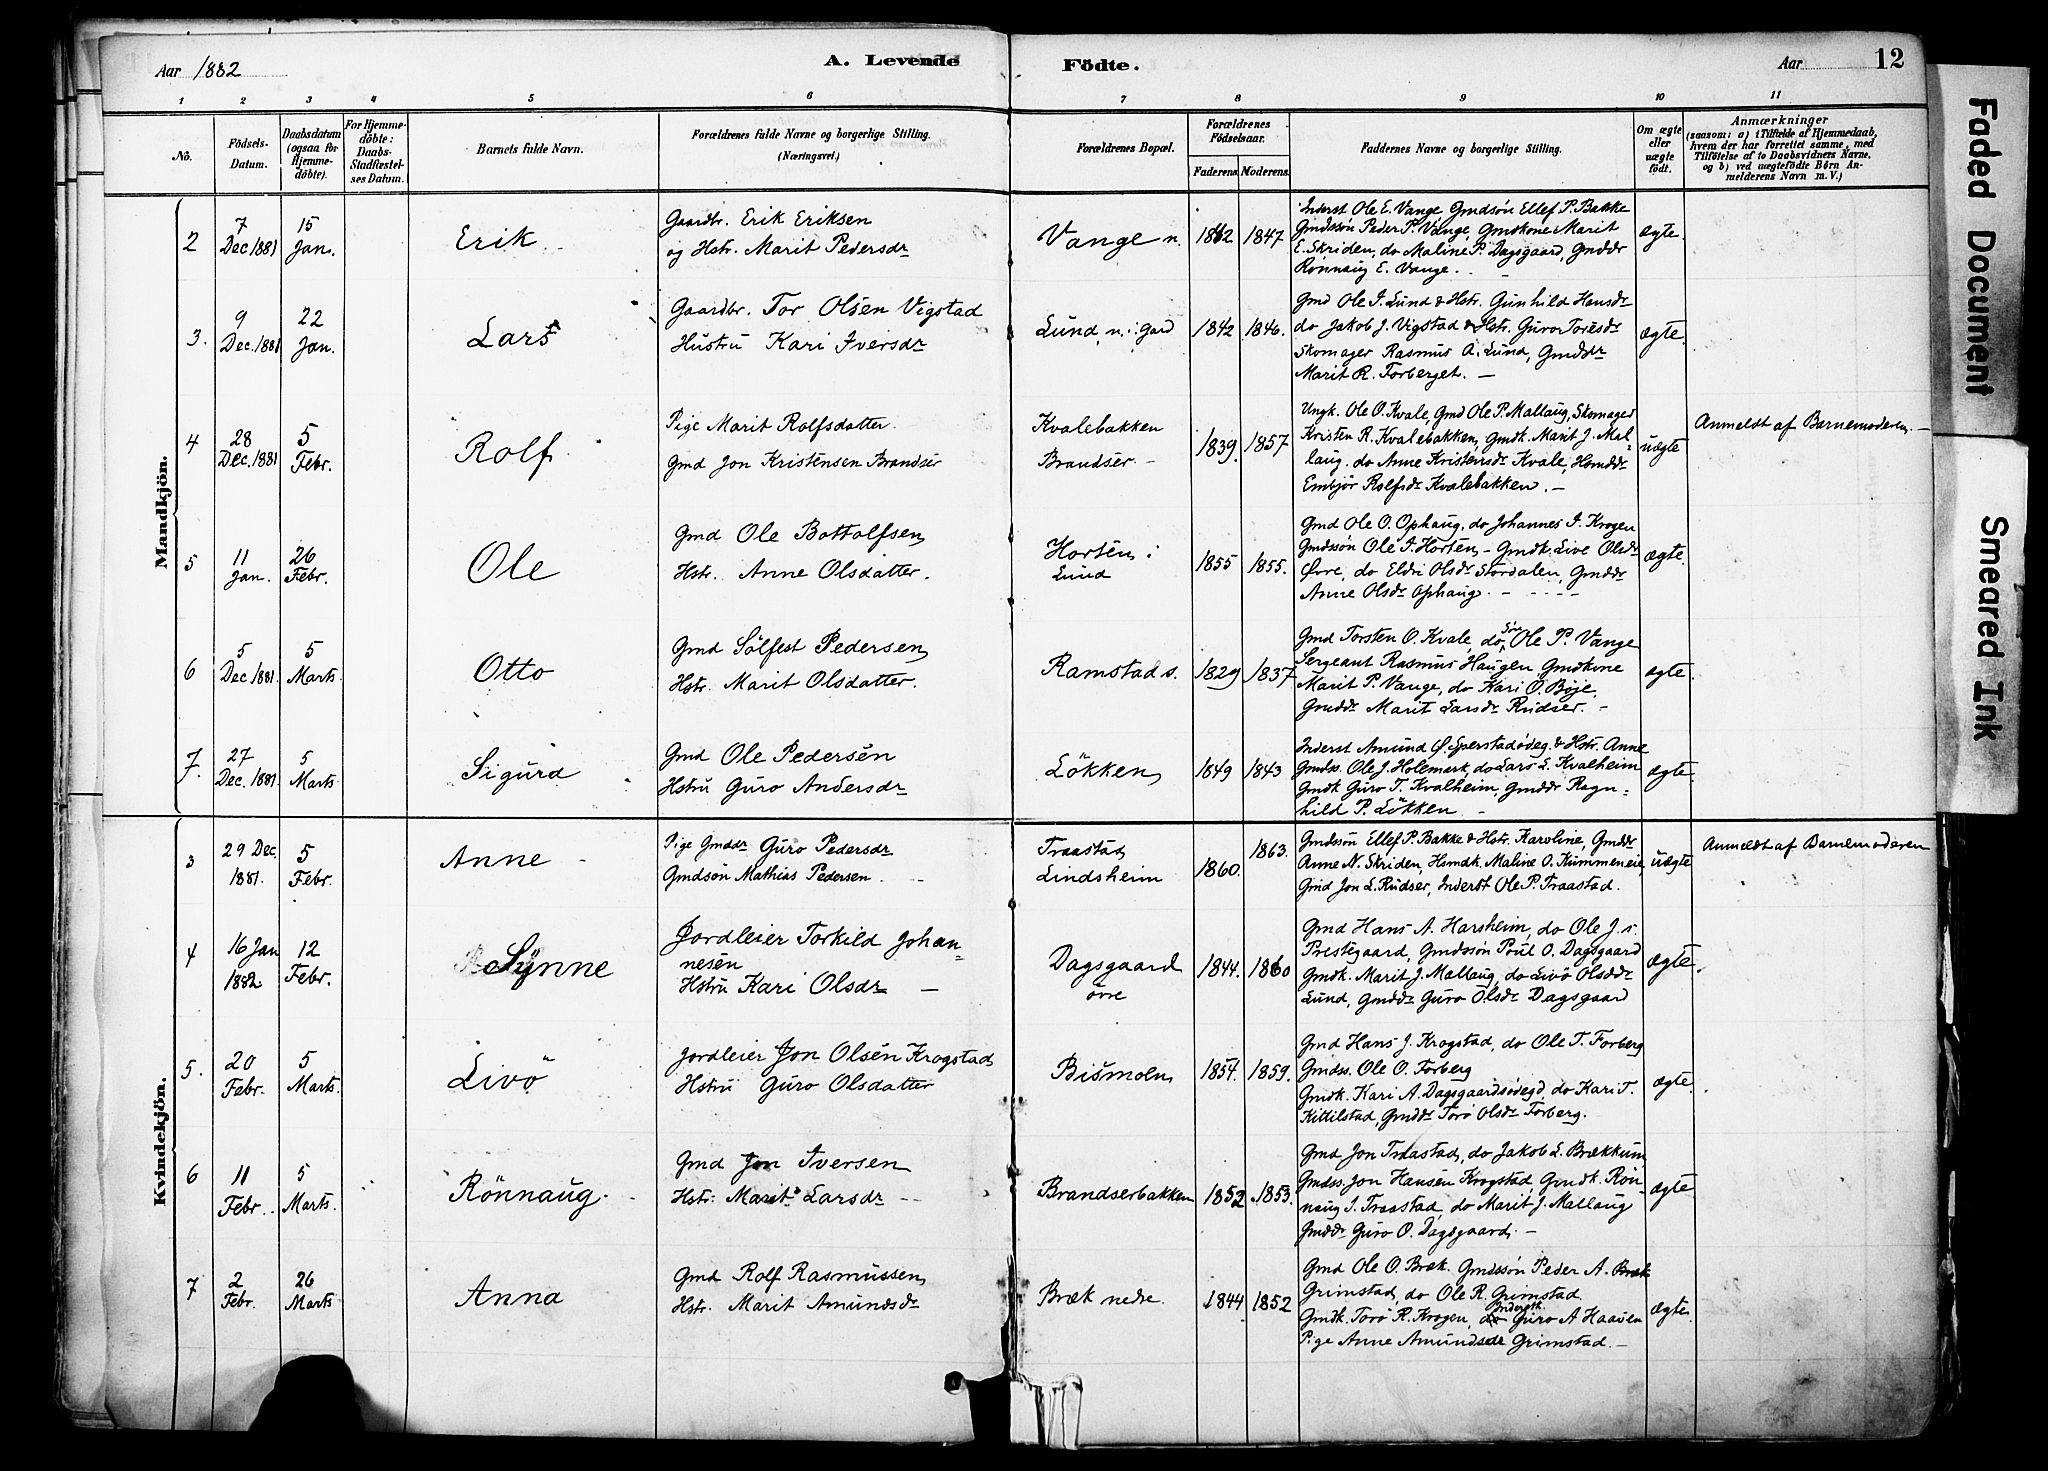 Aar 1882
A. Levende Födte.
Aar 12
1 2 3 4 5 6 7 8 9 10 11
No.
Födsels-Datum.
Daabsdatum (ogsaa for Hjemme-döbte).
For Hjemme-döbte: Daabs-Stadfæstel-ses Datum.
Barnets fulde Navn.
Forældrenes fulde Navne og borgerlige Stilling.
(Næringsvei.)
Forældrenes Bopæl.
Forældrenes Födselsaar.
Faderens Moderens
Faddernes Navne og borgerlige Stilling.
Om ægte eller uægte födt.
Anmærkninger
(saasom: a) i Tilfælde af Hjemmedaab,
hvem der har forrettet samme, med
Tilföielse af to Daabsvidners Navne,
og b) ved uægtefödte Börn An-
melderens Navn m. V.)
Mandkjön.
2
7 Dec 1881
15 Jan.
Erik
Gaardbr. Erik Eriksen
og Hstr. Marit Pedersdr
Vange n.
1842 1847
Inderst Ole E. Vange, Gmdsøn Ellef P. Bakke
Gmdssøn Peder P. Vange, Gmdkone Marit
E. Skriden, do Maline P. Dagsgaard, Gmddr
Rönnaug E. Vange.
ægte.
3.
9 Dec. 1881
22 Jan.
Lars
Gaardbr. Tor Olsen Vigstad
Hustru Kari Iversdr
Lund, n. i gard
1842 1846.
Gmd Ole I. Lund & Hstr. Gunhild Hansdr
do Jakob J. Vigstad & Hstr. Guro Toresdr
Skomager Rasmus A. Lund, Gmddr
Marit R. Forberget. —
ægte.
4
28 Dec. 1881
5 Febr.
Rolf
Pige Marit Rolfsdatter
Gmd Jon Kristensen Brandser
Kvalebakken
Brandser. —
1839. 1857
Ungk. Ole O. Kvale, Gmd Ole P. Mallaug, Skomager
Kristen R. Kvalebakken, Gmdk. Marit J. Mal-
laug. do Anne Kristensdr Kvale, Hsmddr
Embjör Rolfsdr Kvalebakken. —
uægte
Anmeldt af Barnemoderen. —
5
11 Jan.
26 Febr.
Ole
Gmd Ole Bottolfsen
Hstr. Anne Olsdatter.
Horten i
Lund
1855 1855.
Gmd Ole O. Ophaug, do Johannes I. Krogen
Gmdssøn Ole I. Horten — Gmdk. Live Olsdr
Øvre, do Eldri Olsdr Stordalen, Gmddr
Anne Olsdr Ophaug. —
ægte.
6
5 Dec 1881.
5 Marts
Otto
Gmd Sölfest Pedersen
Hstr. Marit Olsdatter.
Ramstad s.
1829 1837
Gmd Torsten O. Kvale, do Søn Ole P. Vange
Sergeant Rasmus Haugen, Gmdkone
Marit P. Vange, do Kari O. Bøje,
Gmddr Marit Larsdr Rudser. —
ægte.
7.
27 Dec. 1881.
5 Marts
Sigurd
Gmd Ole Pedersen
Hstru Guro Andersdr
Lökken
1849 1843
Inderst Amund Ø. Sperstadödeg. & Hstr. Anne
Gmdss. Ole J. Holemark, do Lars L. Kvalheim
Gmdk Guro T. Kvalheim, Gmddr Ragn-
hild P. Lökken —
ægte.
Kvindekjön.
3
29 Dec. 1881.
5 Febr.
Anne
Pige Gmddr Guro Pedersdr
Gmdsön Mathias Pedersen
Traastad
Lindsheim
1860. 1863.
Gmdssøn Ellef P. Bakke & Hstr. Karoline, Gmddr
Anne N. Skriden, Hsmdk. Maline O. Kummeneie,
Gmd Jon L. Rudser, Inderst Ole P. Traastad.
uægte
Anmeldt af Barnemoderen
4
16 Jan 1882
12 Febr.
Synne
Jordleier Torkild Johan-
nesen
Hstru Kari Olsdr —
Dagsgaard
övre
1844. 1860
Gmd Hans A. Harsheim, do Ole J. s.
Prestegaard, Gmdssøn Poul O. Dagsgaard
Gmdk. Marit J. Mallaug, do Livö Olsddr
Lund, Gmddr Guro Olsdr Dagsgaard
ægte.
5.
20 Febr.
5 Marts
Livö
Jordleier Jon Olsen Krogstad
Hstru Guro Olsdatter
Bismoen
1854. 1859.
Gmd Hans J. Krogstad, do Ole T. Forberg
Gmdss. Ole O. Forberg
Gmdk. Kari A. Dagsgaardsödegd, do Kari T.
Kittilstad, Gmddr Torö Olsdr Forberg.
ægte.
6
11 Febr.
5 Marts.
Rönnaug.
Gmd Jon Iversen
Hstr: Marit Larsdr
Brandserbakken
1852 1853.
Gmd Jon Traastad, do Jakob L. Brækkum,
Gmdss. Jon Hansen Krogstad, Gmdk. Rön-
naug I. Traastad, do Marit J. Mallaug
Gmddr Guro O. Dagsgaard. —
ægte
7
2 Febr.
26 Marts
Anna
Gmd Rolf Rasmussen
Hstr. Marit Amundsdr
Bræk nedre.
1844 1852
Gmd Ole O. Bræk. Gmdssøn Peder A. Bræk
Grimstad, do Ole R. Grimstad
Gmdk. Torö R. Krogen, do Inderstk Guro A Haaven
Pige Anne Amundsdr Grimstad. —
ægte.
Faded Document
Smeared Ink